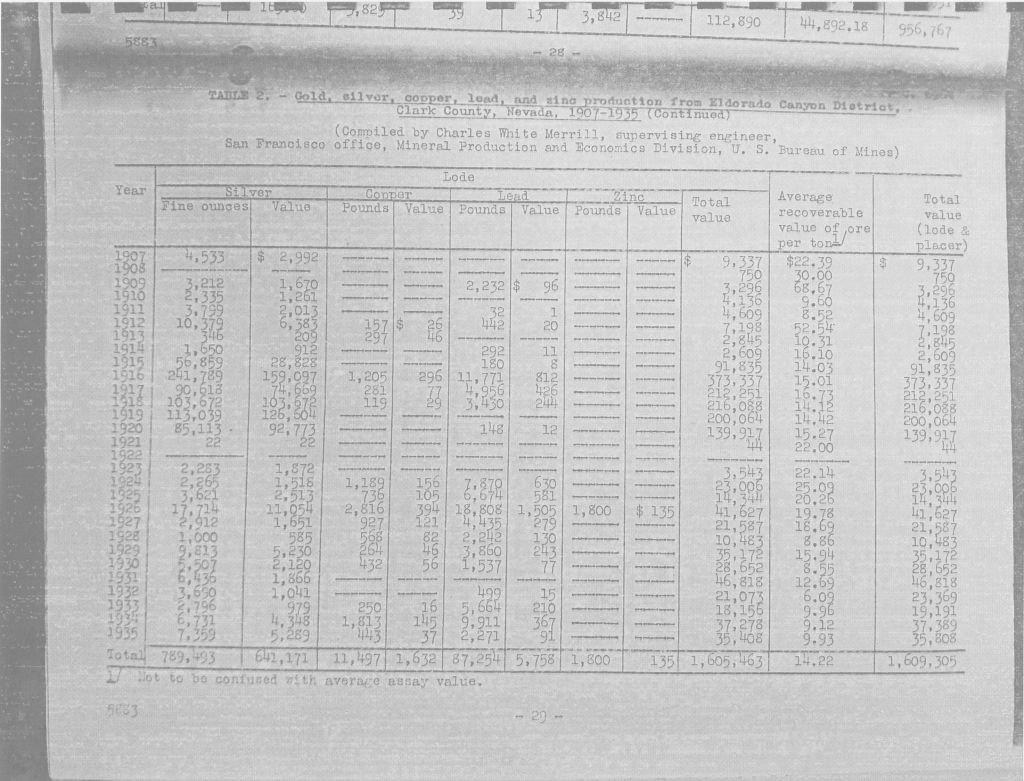 3,825 39 13 3,842 ------ 112,890 44,892.18 956,767
5883
- 28 -
TABLE 2. - Gold, silver, copper, lead, and zinc production from Eldorado Canyon District,
Clark County, Nevada, 1907-1935 (Continued)
(Compiled by Charles White Merrill, supervising engineer,
San Francisco office, Mineral Production and Economics Division, U. S. Bureau of Mines)
Lode
Year Silver Copper Lead Zinc Total value Average recoverable value of ore per ton1/ Total value (lode & placer)
Fine ounces Value Pounds Value Pounds Value Pounds Value
1907 4,533 $ 2,992 ------ ------ ------ ------ ------ ------ $ 9,337 $22.39 $ 9,337
1908 ------ ------ ------ ------ ------ ------ ------ ------ 750 30.00 750
1909 3,212 1,670 ------ ------ 2,232 $ 96 ------ ------ 3,296 68.67 3,296
1910 2,335 1,261 ------ ------ ------ ------ ------ ------ 4,136 9.60 4,136
1911 3,799 2,013 ------ ------ 32 1 ------ ------ 4,609 8.52 4,609
1912 10,379 6,383 157 $ 26 442 20 ------ ------ 7,198 52.54 7,198
1913 346 209 297 46 ------ ------ ------ ------ 2,845 10.31 2,845
1914 1,650 912 ------ ------ 292 11 ------ ------ 2,609 16.10 2,609
1915 56,859 28,828 ------ ------ 180 8 ------ ------ 91,835 14.03 91,835
1916 241,789 159,097 1,205 296 11,771 812 ------ ------ 373,337 15.01 373,337
1917 90,618 74,669 281 77 4,956 426 ------ ------ 212,251 16.73 212,251
1918 103,672 103,672 119 29 3,430 244 ------ ------ 216,088 14.12 216,088
1919 113,039 126,604 ------ ------ ------ ------ ------ ------ 200,064 14.42 200,064
1920 85,113 92,773 ------ ------ 148 12 ------ ------ 139,917 15.27 139,917
1921 22 22 ------ ------ ------ ------ ------ ------ 44 22.00 44
1922 ------ ------ ------ ------ ------ ------ ------ ------ ------ ------ ------
1923 2,283 1,872 ------ ------ ------ ------ ------ ------ 3,543 22.14 3,543
1924 2,265 1,518 1,189 156 7,870 630 ------ ------ 23,006 25.09 23,006
1925 3,621 2,513 736 105 6,674 581 ------ ------ 14,344 20.26 14,344
1926 17,714 11,054 2,816 394 18,808 1,505 1,800 $ 135 41,627 19.78 41,627
1927 2,912 1,651 927 121 4,435 279 ------ ------ 21,587 18.69 21,587
1928 1,000 585 568 82 2,242 130 ------ ------ 10,483 8.86 10,483
1929 9,813 5,230 264 46 3,860 243 ------ ------ 35,172 15.94 35,172
1930 5,507 2,120 432 56 1,537 77 ------ ------ 28,652 8.55 28,652
1931 6,436 1,866 ------ ------ ------ ------ ------ ------ 46,818 12.69 46,818
1932 3,690 1,041 ------ ------ 499 15 ------ ------ 21,073 6.09 23,369
1933 2,796 979 250 16 5,664 210 ------ ------ 18,156 9.96 19,191
1934 6,731 4,348 1,813 145 9,911 367 ------ ------ 37,278 9.12 37,389
1935 7,359 5,289 443 37 2,271 91 ------ ------ 35,408 9.93 35,808
Total 789,493 641,171 11,497 1,632 87,254 5,758 1,800 135 1,605,463 14.22 1,609,305
1/ Not to be confused with average assay value.
5883
- 29 -